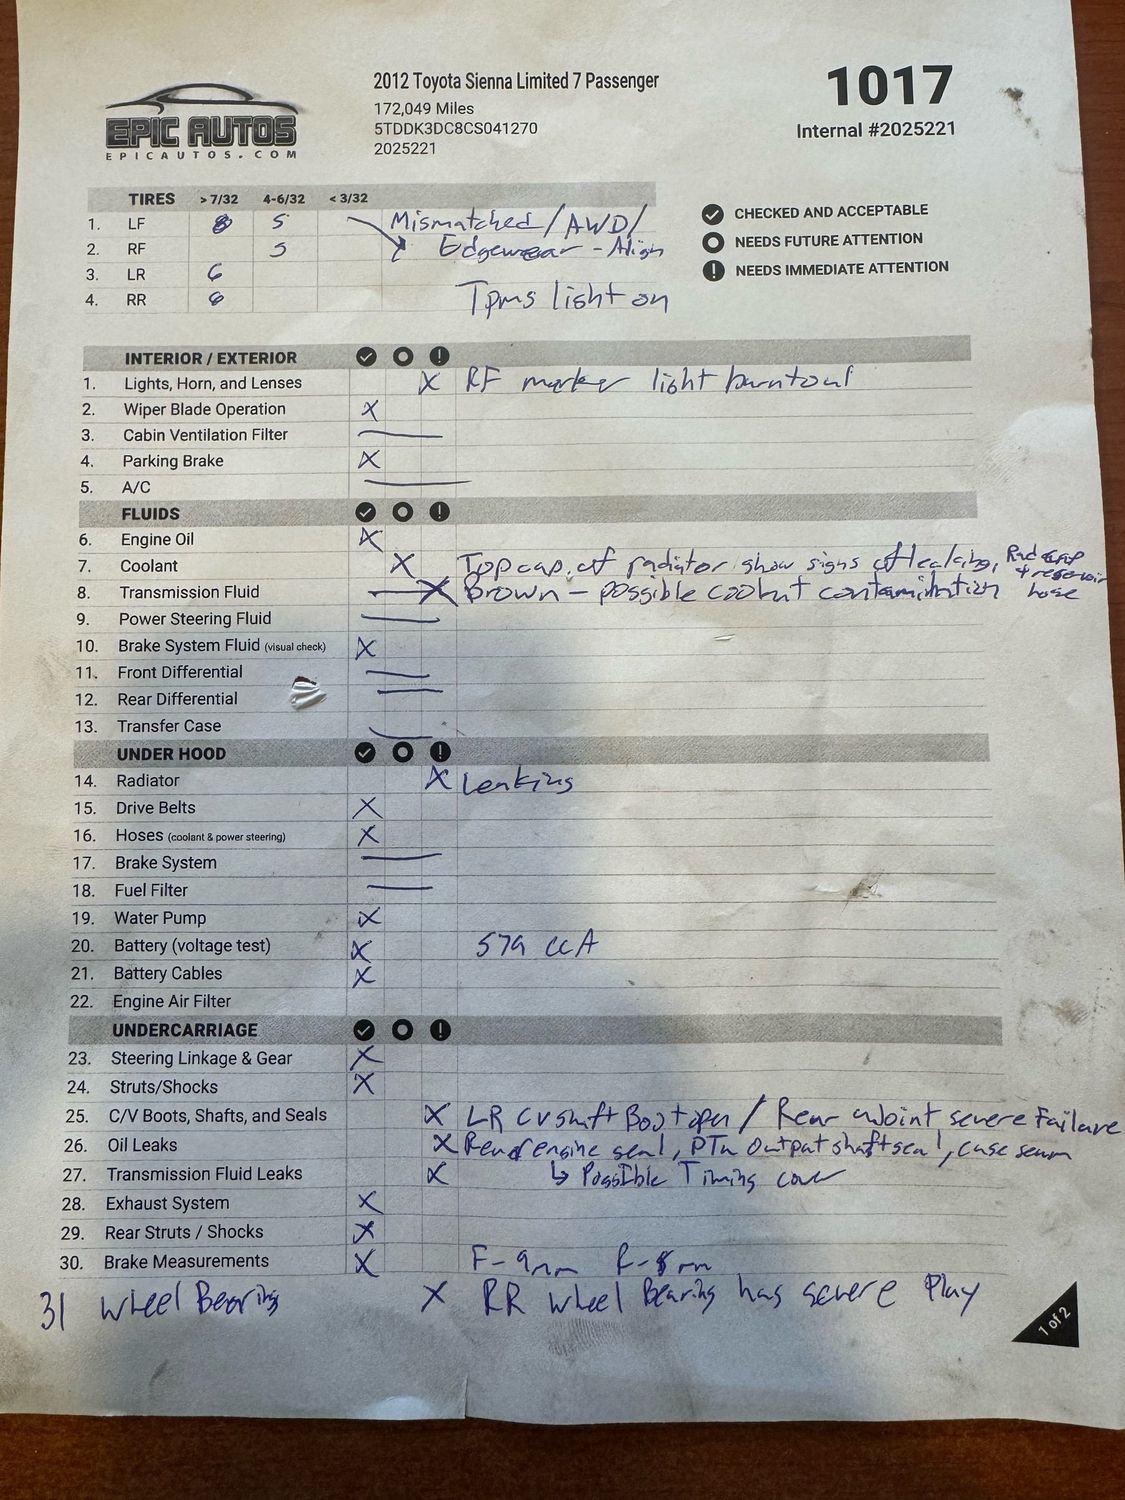 EPIC AUTOS
EPICAUTOS.COM
2012 Toyota Sienna Limited 7 Passenger
172,049 Miles
5TDDK3DC8CS041270
2025221
1017
Internal #2025221
TIRES > 7/32 4-6/32 < 3/32
1. LF 5 Mismatched/AWD/
2. RF 5 Edgewear - Align
3. LR 6
4. RR 6 Tpms light on
CHECKED AND ACCEPTABLE
NEEDS FUTURE ATTENTION
NEEDS IMMEDIATE ATTENTION
INTERIOR / EXTERIOR
1. Lights, Horn, and Lenses X RF marker light burntout
2. Wiper Blade Operation X
3. Cabin Ventilation Filter
4. Parking Brake X
5. A/C
FLUIDS
6. Engine Oil X
7. Coolant X Top cap of radiator show signs of leaking, Rad cap
+ reservoir
hose
8. Transmission Fluid X Brown - possible coolant contamination
9. Power Steering Fluid
10. Brake System Fluid (visual check) X
11. Front Differential
12. Rear Differential
13. Transfer Case
UNDER HOOD
14. Radiator X Leaking
15. Drive Belts X
16. Hoses (coolant & power steering) X
17. Brake System
18. Fuel Filter
19. Water Pump X
20. Battery (voltage test) X 579 CCA
21. Battery Cables X
22. Engine Air Filter
UNDERCARRIAGE
23. Steering Linkage & Gear X
24. Struts/Shocks X
25. C/V Boots, Shafts, and Seals X LR CV shaft Boot open / Rear ujoint severe Failure
26. Oil Leaks X Rear engine seal, PTU output shaft seal, case seam
27. Transmission Fluid Leaks X ↳ Possible Timing cover
28. Exhaust System X
29. Rear Struts / Shocks X
30. Brake Measurements X F-9mm R-8mm
31 Wheel Bearing X RR Wheel Bearing has severe Play
1 of 2